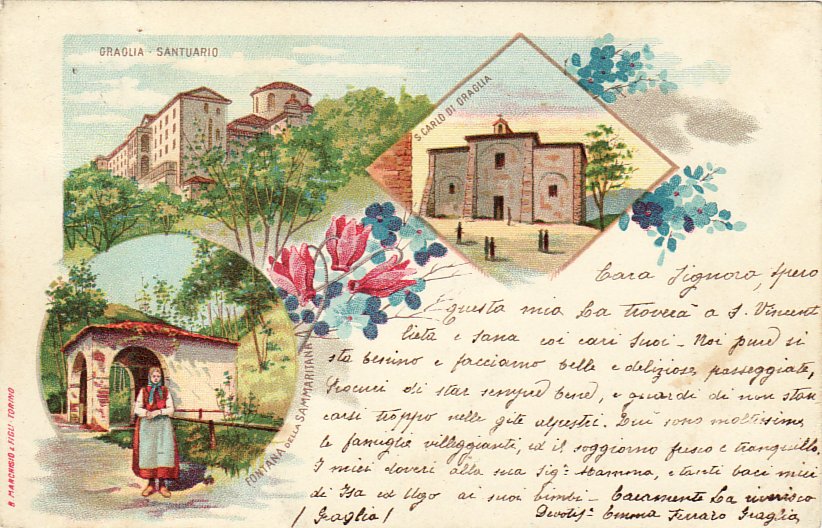 GRAGLIA - SANTUARIO
S. CARLO DI GRAGLIA
FONTANA DELLA SAMMARITANA
B. MARCHISIO & FIGLI - TORINO
Cara Signora, spero
questa mia La troverà a S. Vincent
lieta e sana coi cari Suoi - Noi pure si
sta benino e facciamo belle e deliziose passeggiate,
Procuri di star sempre bene, e guardi di non stan
carsi troppo nelle gite alpestri. Qui sono moltissime
le famiglie villeggianti, ed il soggiorno fresco e tranquillo.
I miei doveri alla sua Sigᵃ Mamma, e tanti baci miei
di Isa ed Ugo ai suoi bimbi - Caramente La riverisco
(Graglia) Devotisᵃ Emma Ferraro Graglia